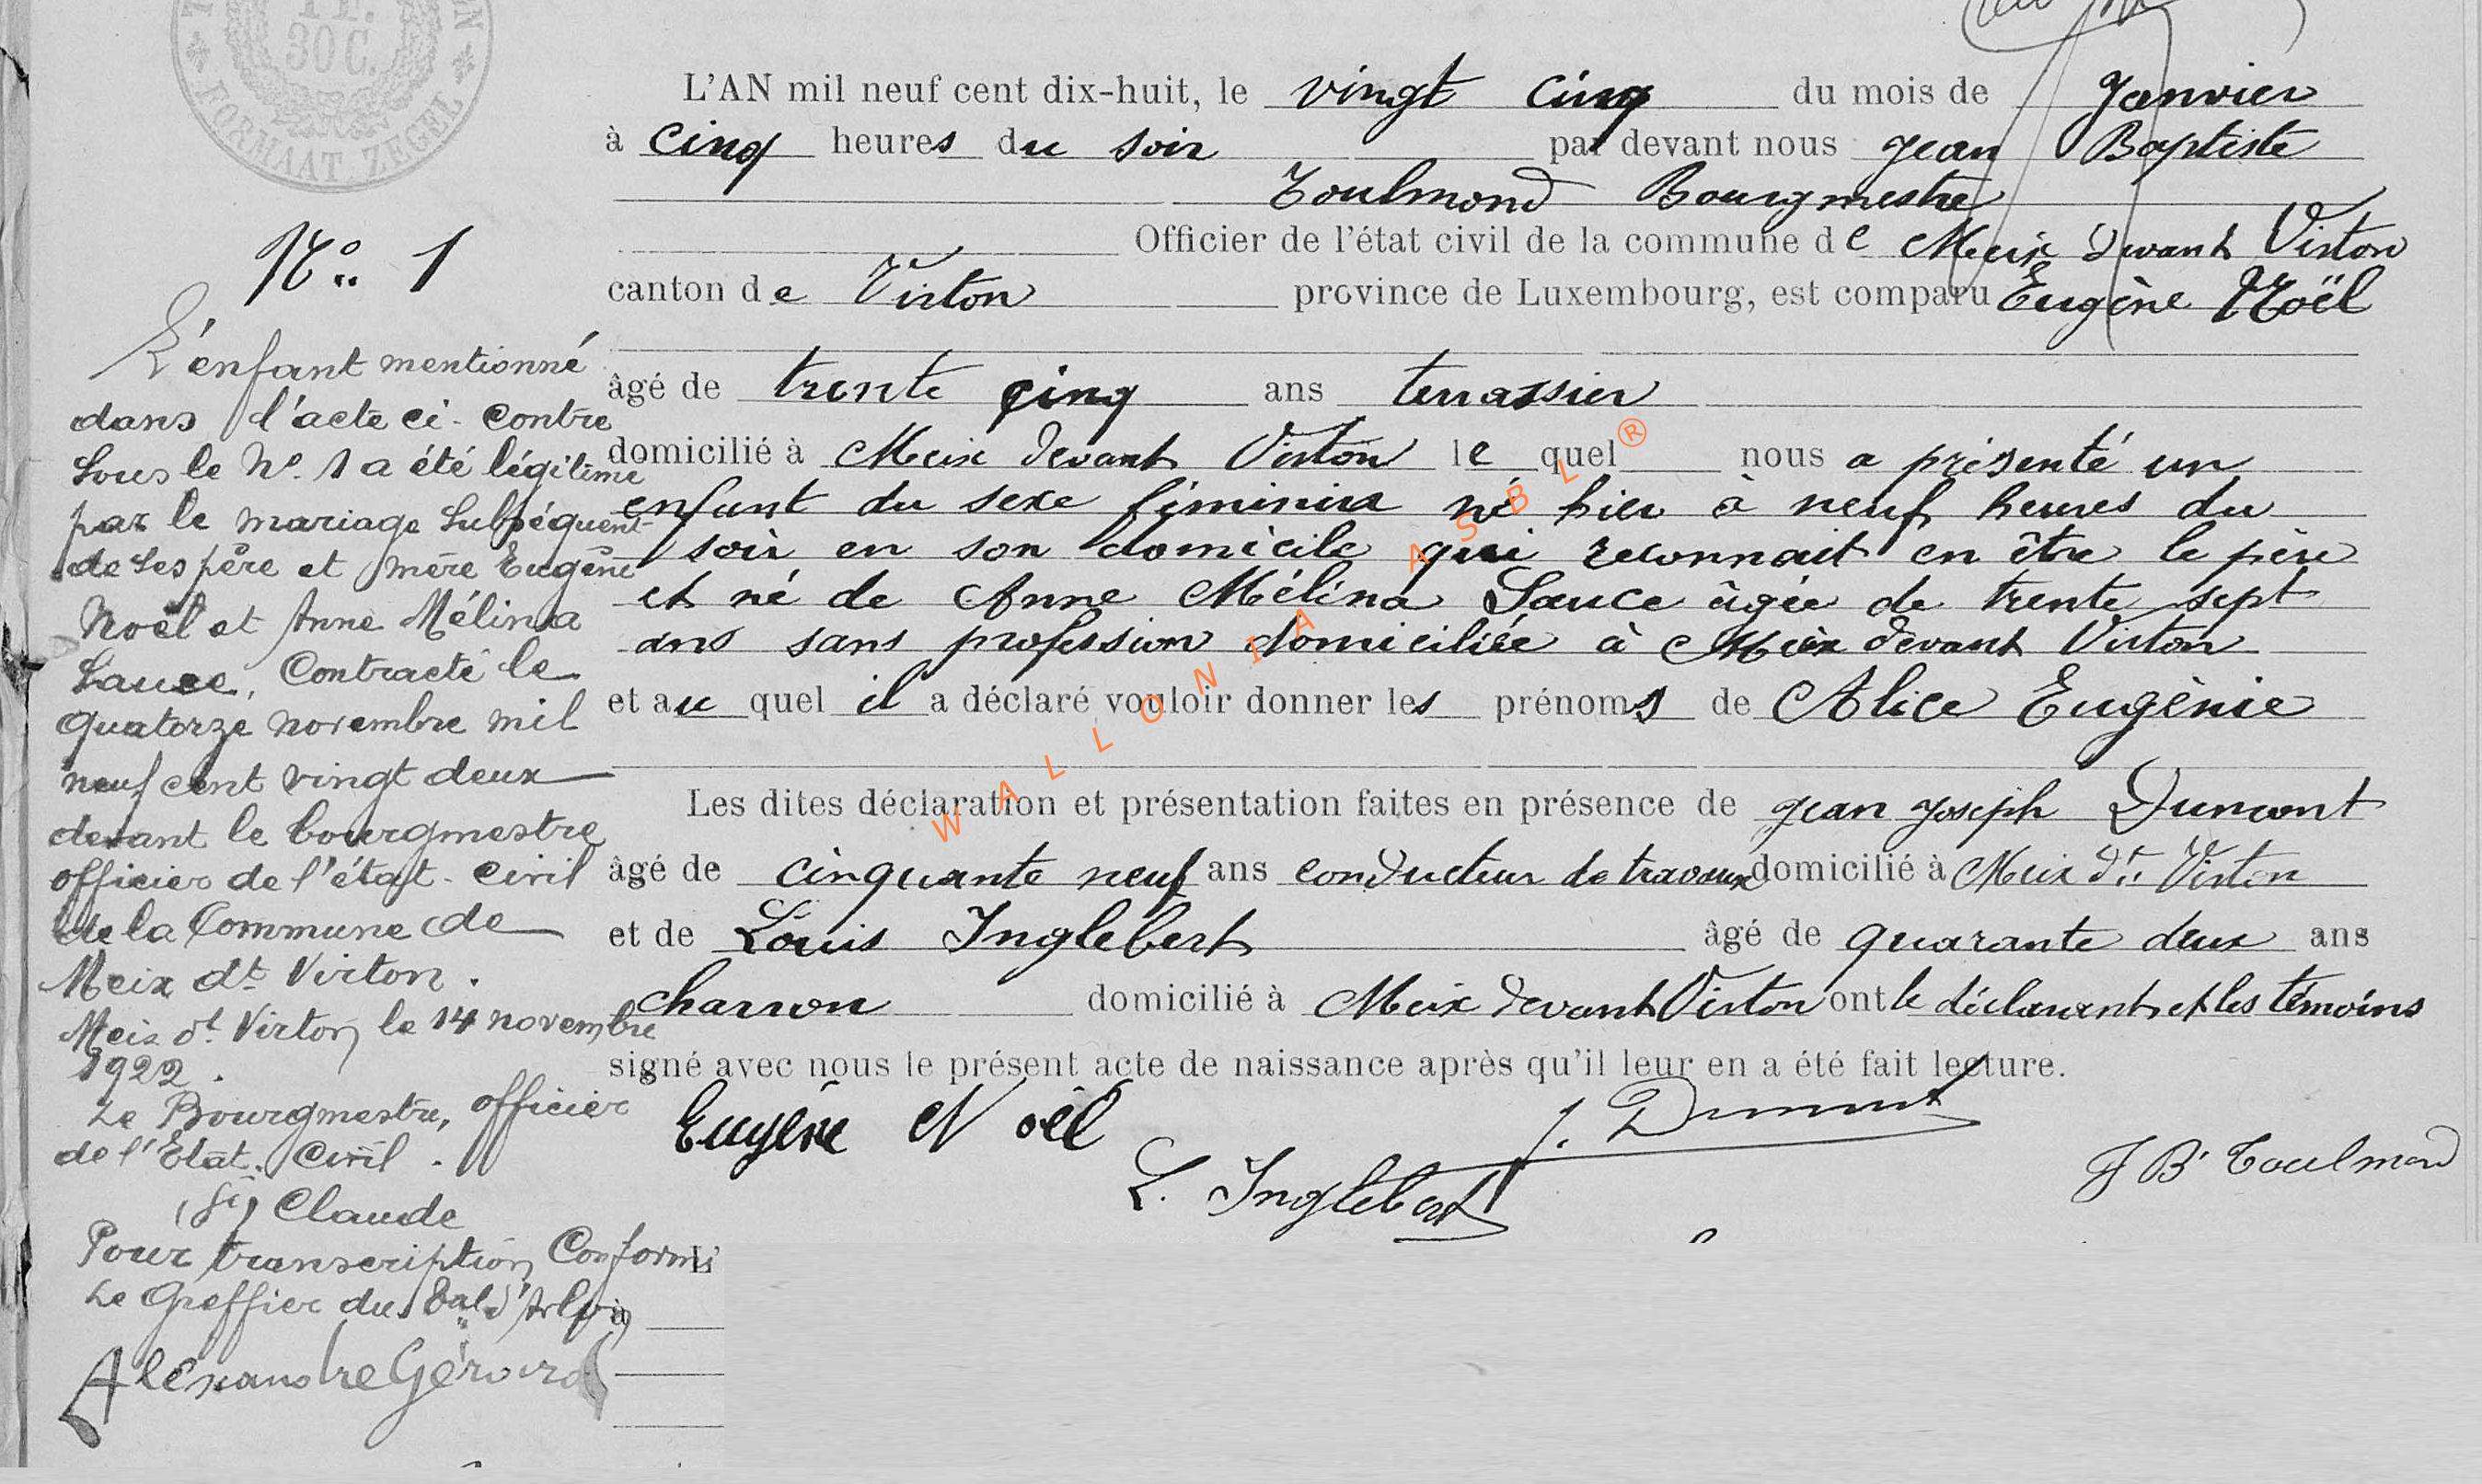 30C.
FORMAAT ZEGEL
N° 1
L'enfant mentionné
dans l'acte ci-contre
sous le N° 1 a été légitimé
par le mariage subséquent
de ses père et mère Eugène
Noël et Anne Mélina
Sauce, Contracté le
quatorze novembre mil
neuf cent vingt deux
devant le bourgmestre
officier de l'état-civil
de la Commune de
Meix dt Virton.
Meix dt Virton, le 14 novembre
1922.
Le Bourgmestre, officier
de l'Etat-Civil.
(Si) Claude
Pour transcription Conforme
Le Greffier du Bal d'Arlon
Alexandre Gérard
L'AN mil neuf cent dix-huit, le vingt cinq du mois de Janvier
à cinq heures du soir par devant nous Jean Baptiste
Toulmond Bourgmestre
Officier de l'état civil de la commune de Meix devant Virton
canton de Virton province de Luxembourg, est comparu Eugène Noël
âgé de trente cinq ans terrassier
domicilié à Meix devant Virton lequel nous a présenté un
enfant du sexe féminin né hier à neuf heures du
soir en son domicile qui reconnait en être le père
et né de Anne Mélina Sauce âgée de trente sept
ans sans profession domiciliée à Meix devant Virton
et auquel il a déclaré vouloir donner les prénoms de Alice Eugénie
Les dites déclaration et présentation faites en présence de Jean Joseph Dumont
âgé de cinquante neuf ans conducteur de travaux domicilié à Meix dt Virton
et de Louis Inglebert âgé de quarante deux ans
charron domicilié à Meix devant Virton ont le déclarant et les témoins
signé avec nous le présent acte de naissance après qu'il leur en a été fait lecture.
Eugène Noël
J. Dumont
L. Inglebert
J B Toulmond
L'
à
WALLONIA ASBL ®